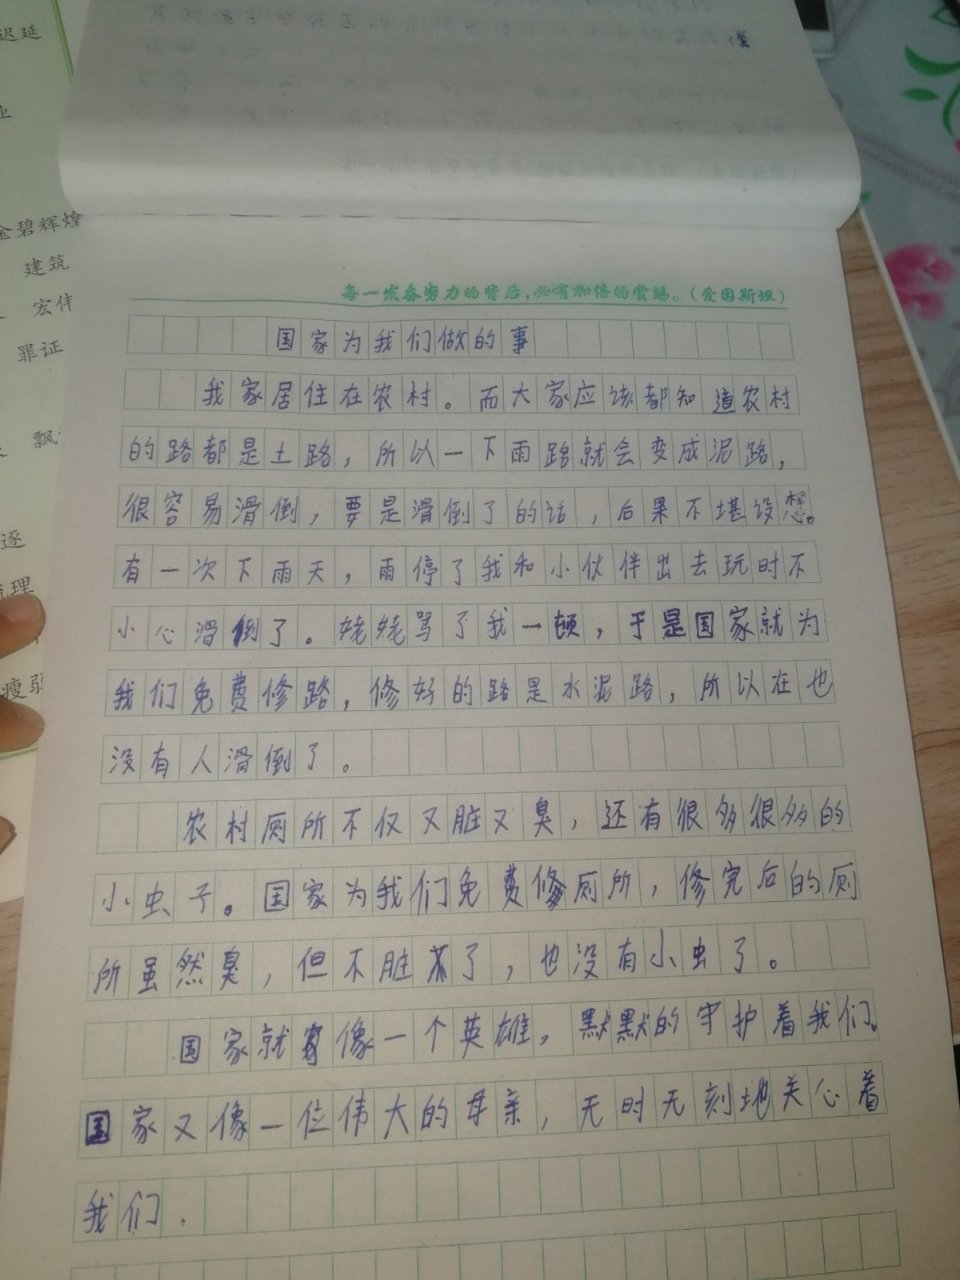 迟延
业
金碧辉煌
建筑
宏伟
罪证
飘
逐
梳理
瘦弱
每一发奋努力的背后，必有加倍的赏赐。（爱因斯坦）
国家为我们做的事
我家居住在农村。而大家应该都知道农村
的路都是土路，所以一下雨路就会变成泥路，
很容易滑倒，要是滑倒了的话，后果不堪设想。
有一次下雨天，雨停了我和小伙伴出去玩时不
小心滑倒了。姥姥骂了我一顿，于是国家就为
我们免费修路，修好的路是水泥路，所以在也
没有人滑倒了。
农村厕所不仅又脏又臭，还有很多很多的
小虫子。国家为我们免费修厕所，修完后的厕
所虽然臭，但不脏了，也没有小虫了。
国家就像一个英雄，默默的守护着我们。
国家又像一位伟大的母亲，无时无刻地关心着
我们.